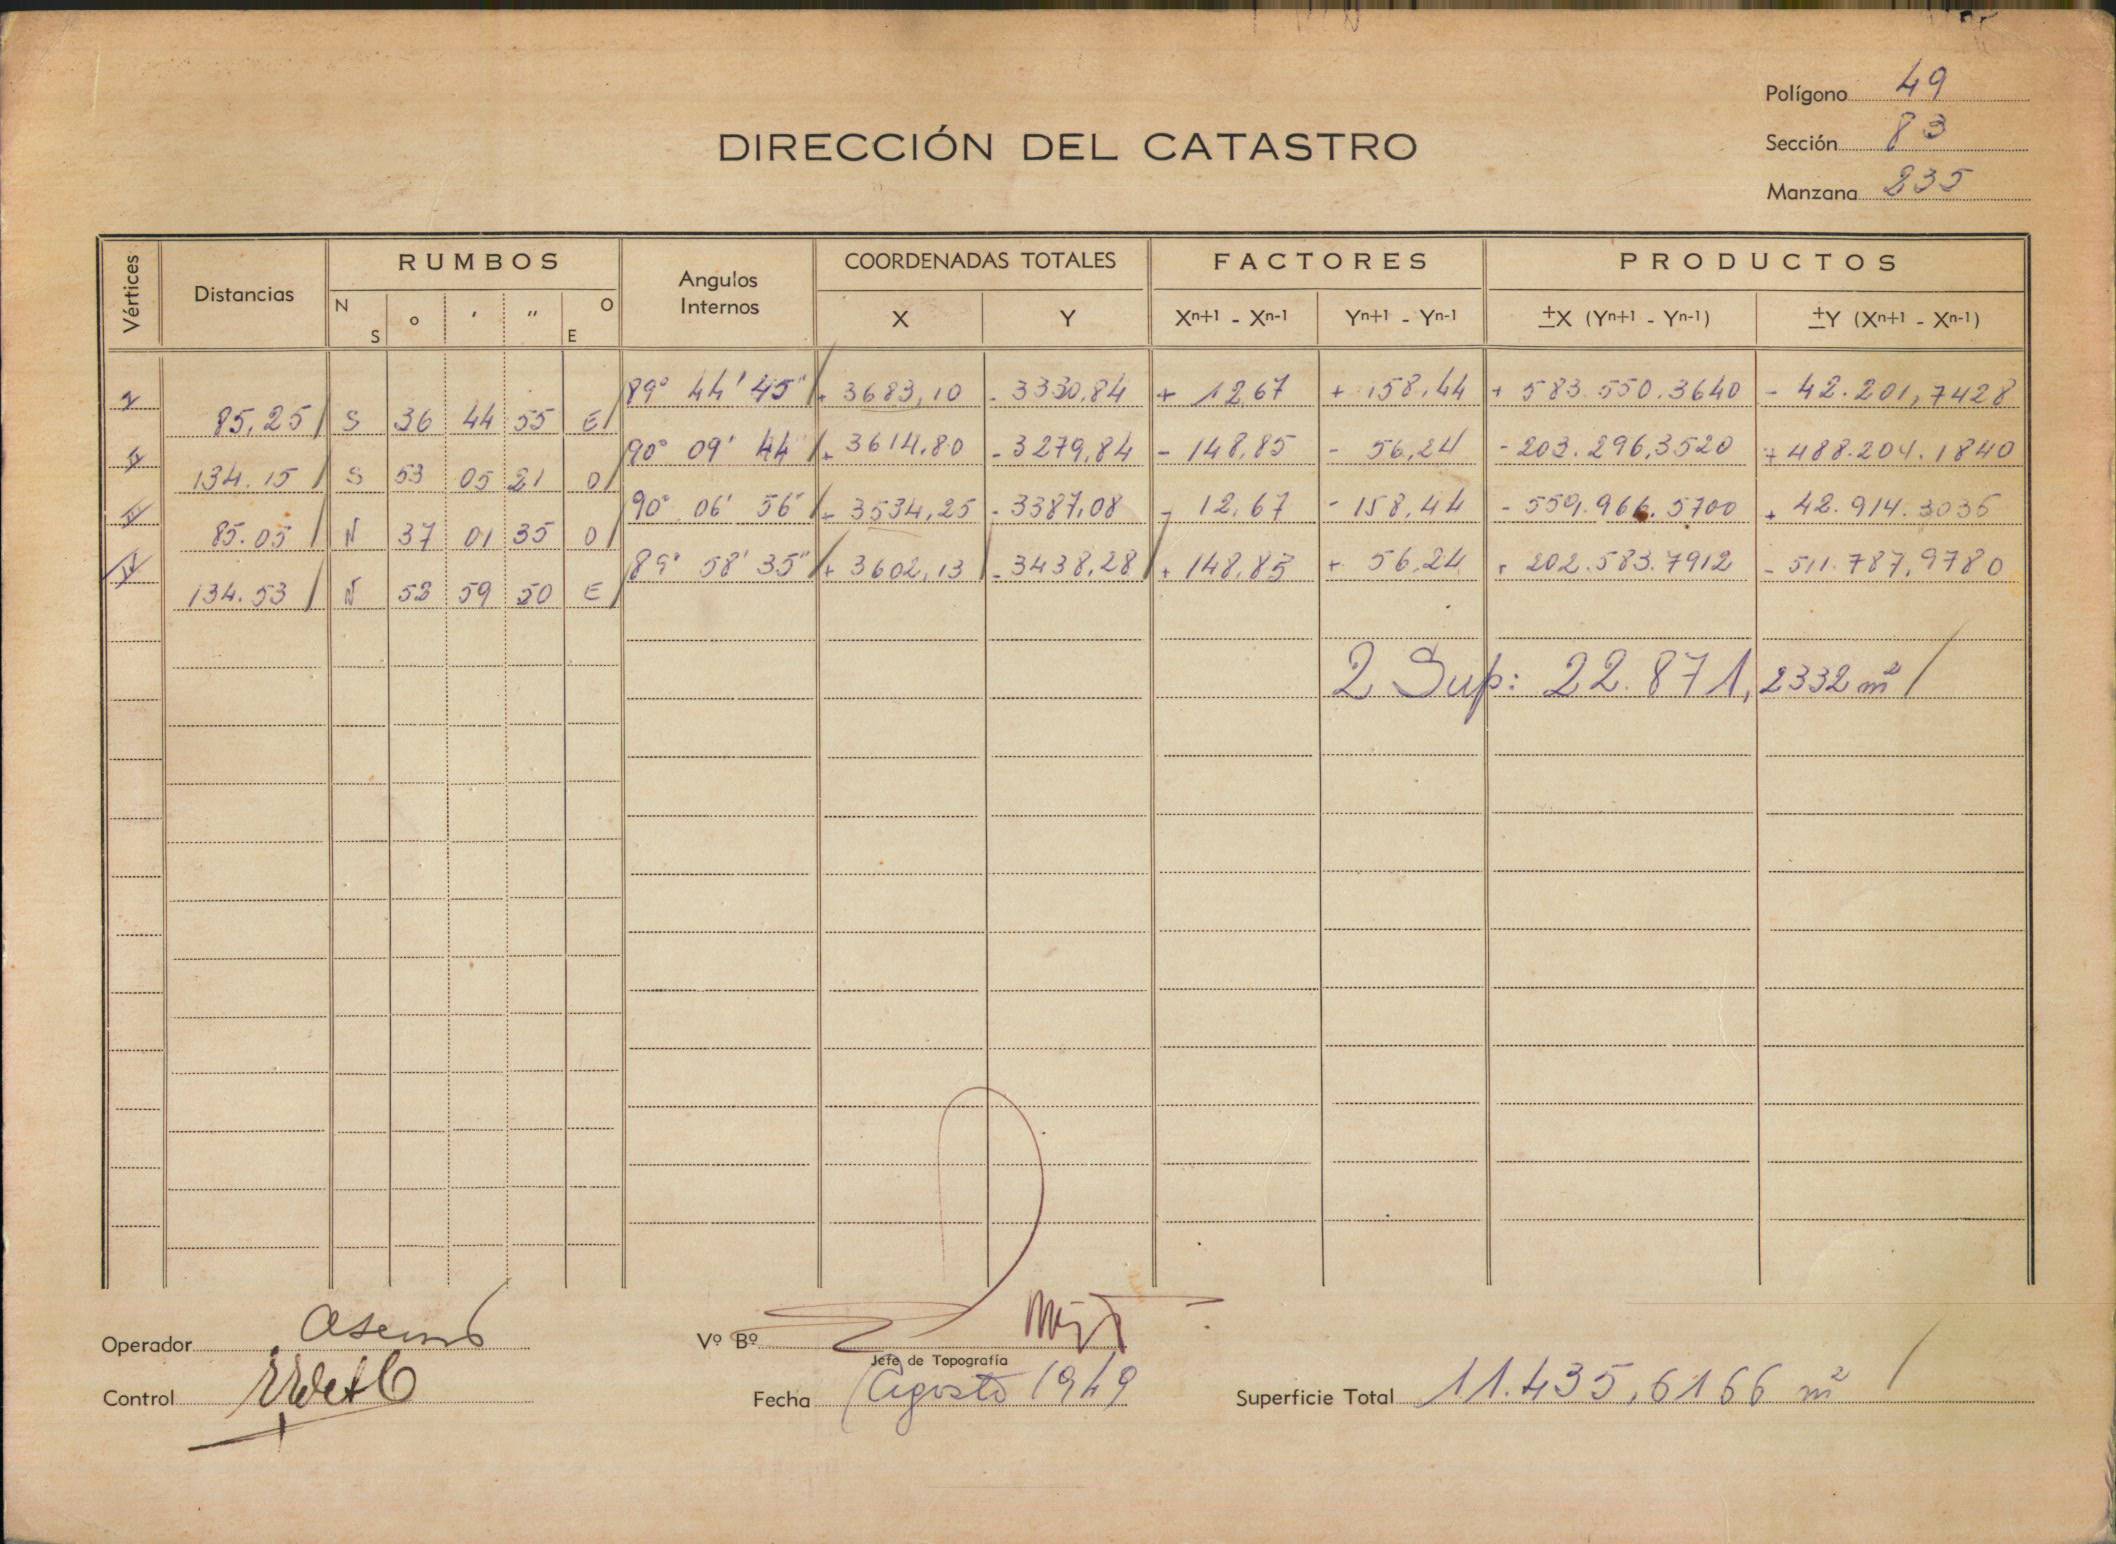 Polígono 49
DIRECCIÓN DEL CATASTRO
Sección 83
Manzana 235
Vértices Distancias RUMBOS Angulos Internos COORDENADAS TOTALES FACTORES PRODUCTOS
N S o ' " O E X Y Xn+1 - Xn-1 Yn+1 - Yn-1 ±X (Yn+1 - Yn-1) ±Y (Xn+1 - Xn-1)
I 89° 44' 45" + 3683,10 - 3330,84 + 12,67 + 158,44 + 583.550.3640 - 42.201,7428
85,25 S 36 44 55 E
II 90° 09' 44 + 3614,80 - 3279,84 - 148,85 - 56,24 - 203.296,3520 + 488.204.1840
134.15 S 53 05 21 O
III 90° 06' 56" + 3534,25 - 3387,08 - 12,67 - 158,44 - 559.966.5700 + 42.914.3036
85.05 N 37 01 35 O
IV 89° 58' 35" + 3602,13 - 3438,28 + 148,85 + 56,24 + 202.583.7912 - 511.787,9780
134.53 N 52 59 50 E
2 Sup: 22.871,2332 m²
Operador
Vº Bº
Jefe de Topografía
Control
Fecha Agosto 1949
Superficie Total 11.435,6166 m²